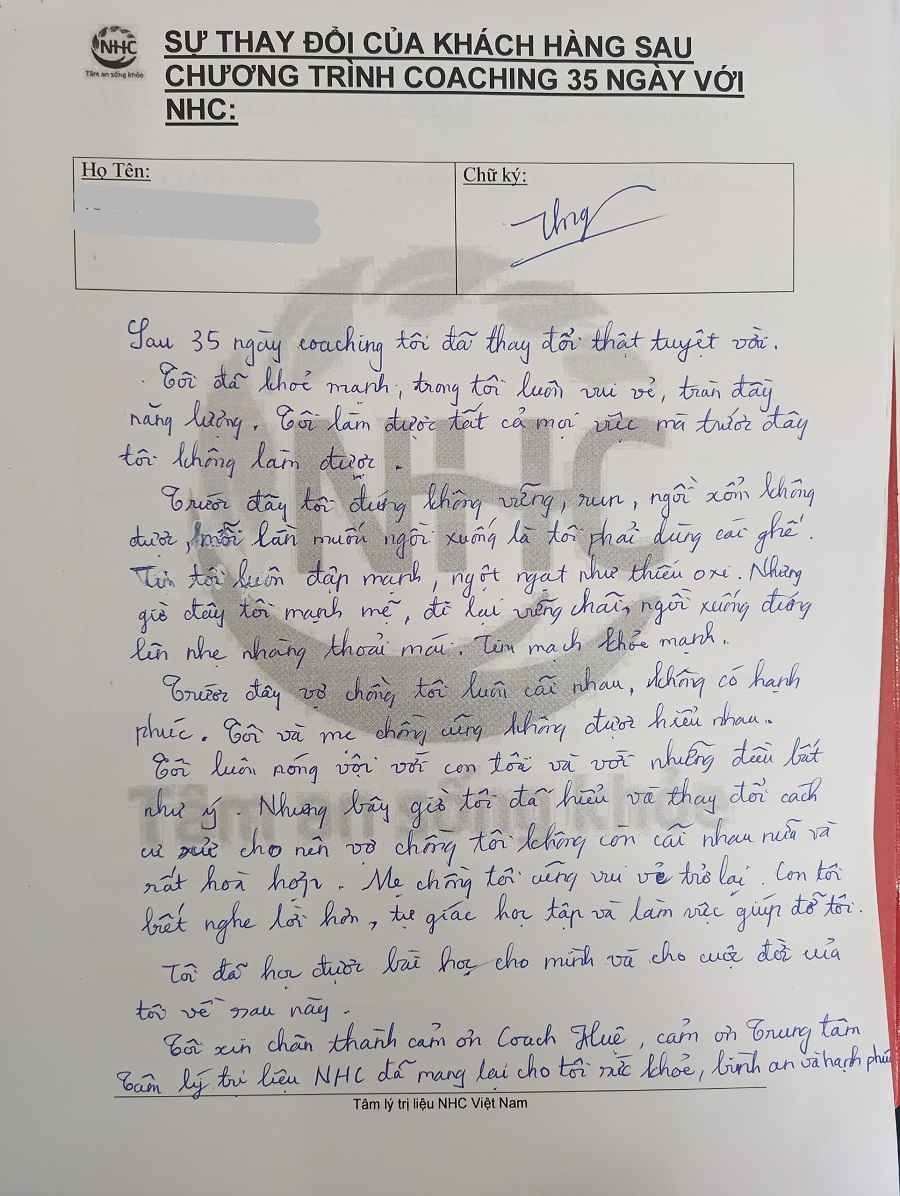 NHC
Tâm an sống khỏe
SỰ THAY ĐỔI CỦA KHÁCH HÀNG SAU
CHƯƠNG TRÌNH COACHING 35 NGÀY VỚI
NHC:
Họ Tên:
Chữ ký:
Sau 35 ngày coaching tôi đã thay đổi thật tuyệt vời.
Tôi đã khoẻ mạnh, trong tôi luôn vui vẻ, tràn đầy
năng lượng. Tôi làm được tất cả mọi việc mà trước đây
tôi không làm được.
Trước đây tôi đứng không vững, run, ngồi xổm không
được, mỗi lần muốn ngồi xuống là tôi phải dùng cái ghế.
Tim tôi luôn đập mạnh, ngột ngạt như thiếu oxi. Nhưng
giờ đây tôi mạnh mẽ, đi lại vững chãi, ngồi xuống đứng
lên nhẹ nhàng thoải mái. Tim mạch khỏe mạnh.
Trước đây vợ chồng tôi luôn cãi nhau, không có hạnh
phúc. Tôi và mẹ chồng cũng không được hiểu nhau.
Tôi luôn nóng vội với con tôi và với những điều bất
như ý. Nhưng bây giờ tôi đã hiểu và thay đổi cách
cư xử cho nên vợ chồng tôi không còn cãi nhau nữa và
rất hoà hợp. Mẹ chồng tôi cũng vui vẻ trở lại. Con tôi
biết nghe lời hơn, tự giác học tập và làm việc giúp đỡ tôi.
Tôi đã học được bài học cho mình và cho cuộc đời của
tôi về sau này.
Tôi xin chân thành cảm ơn Coach Huê, cảm ơn Trung tâm
Tâm lý trị liệu NHC đã mang lại cho tôi sức khỏe, bình an và hạnh phúc
Tâm lý trị liệu NHC Việt Nam
NHC
Tâm an sống khỏe